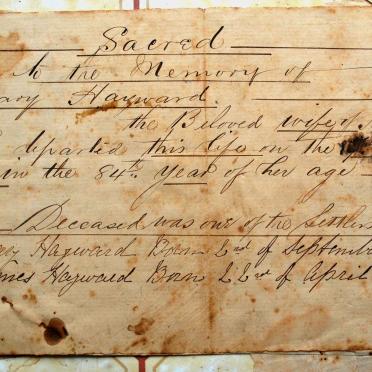 Sacred
to the Memory of
ary Hayward.
the Beloved wife of
departed this life on the
in the 84th Year of her age
Deceased was one of the Settlem
Hayward Born 2nd of Septembe
mes Hayward Born 22nd of April